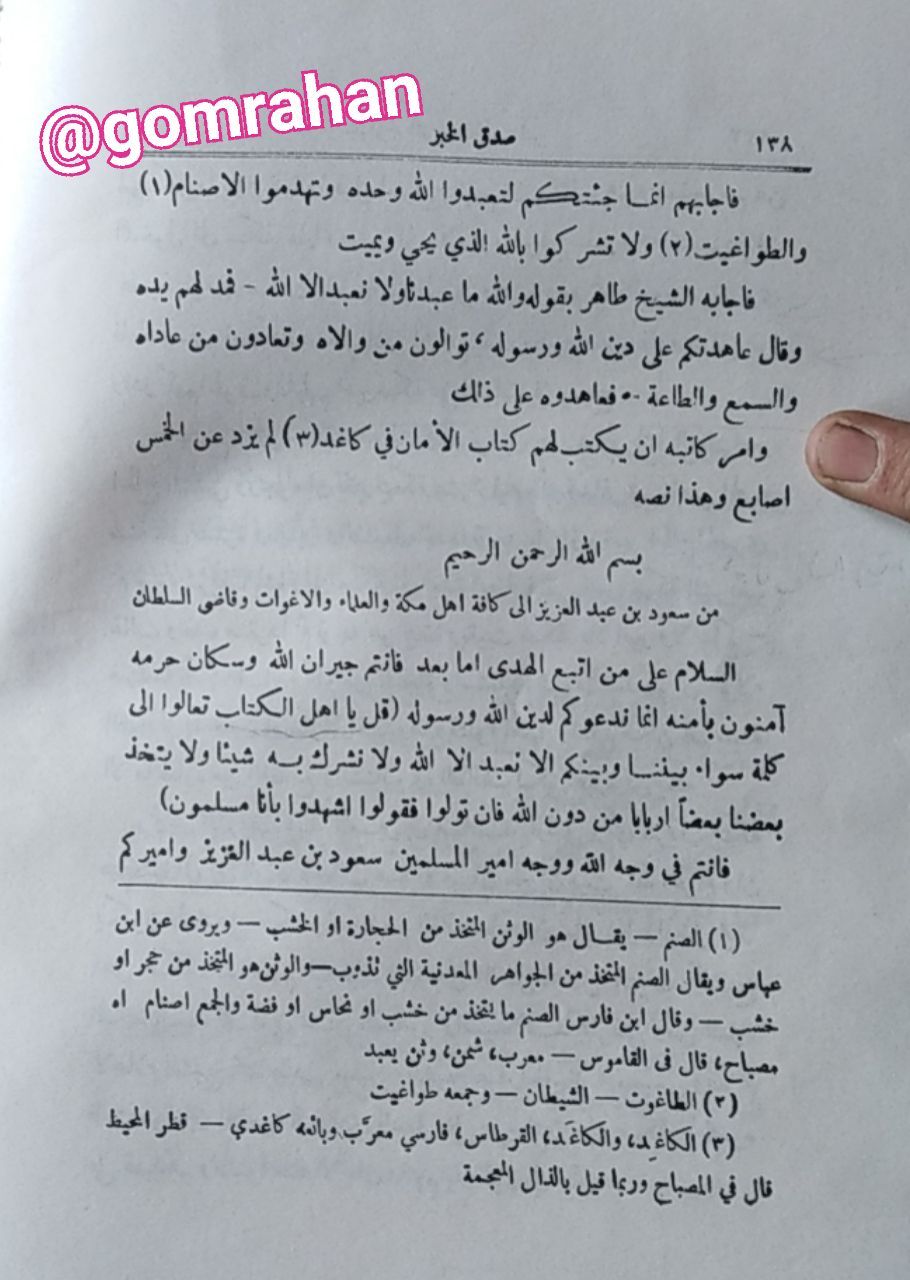 @gomrahan
١٣٨ صدق الخبر
فاجابهم انما جئتكم لتعبدوا الله وحده وتهدموا الاصنام(١)
والطواغيت(٢) ولا تشركوا بالله الذي يحي ويميت
فاجابه الشيخ طاهر بقوله والله ما عبدنا ولا نعبد الا الله – فمد لهم يده
وقال عاهدتكم على دين الله ورسوله ، توالون من والاه وتعادون من عاداه
والسمع والطاعة ۰ فعاهدوه على ذالك
وامر كاتبه ان يكتب لهم كتاب الأمان في كاغد(٣) لم يزد عن الخمس
اصابع وهذا نصه
بسم الله الرحمن الرحيم
من سعود بن عبد العزيز الى كافة اهل مكة والعلماء والاغوات وقاضى السلطان
السلام على من اتبع الهدى اما بعد فانتم جيران الله وسكان حرمه
آمنون بأمنه انما ندعوكم لدين الله ورسوله (قل يا اهل الكتاب تعالوا الى
كلمة سواء بيننا وبينكم الا نعبد الا الله ولا نشرك به شيئا ولا يتخذ
بعضنا بعضاً اربابا من دون الله فان تولوا فقولوا اشهدوا بأنا مسلمون)
فانتم في وجه الله ووجه امير المسلمين سعود بن عبد العزيز واميركم
(١) الصنم — يقال هو الوثن المتخذ من الحجارة او الخشب — ويروى عن ابن
عباس ويقال الصنم المتخذ من الجواهر المعدنية التي تذوب—والوثن هو المتخذ من حجر او
خشب — وقال ابن فارس الصنم ما يتخذ من خشب او نحاس او فضة والجمع اصنام اه
مصباح، قال فى القاموس — معرب، شمن، وثن يعبد
(٢) الطاغوت — الشيطان — وجمعه طواغيت
(٣) الكاغِد، والكاغَد، القرطاس، فارسي معرَّب وبائعه كاغدي — قطر المحيط
قال في المصباح وربما قيل بالذال المعجمة